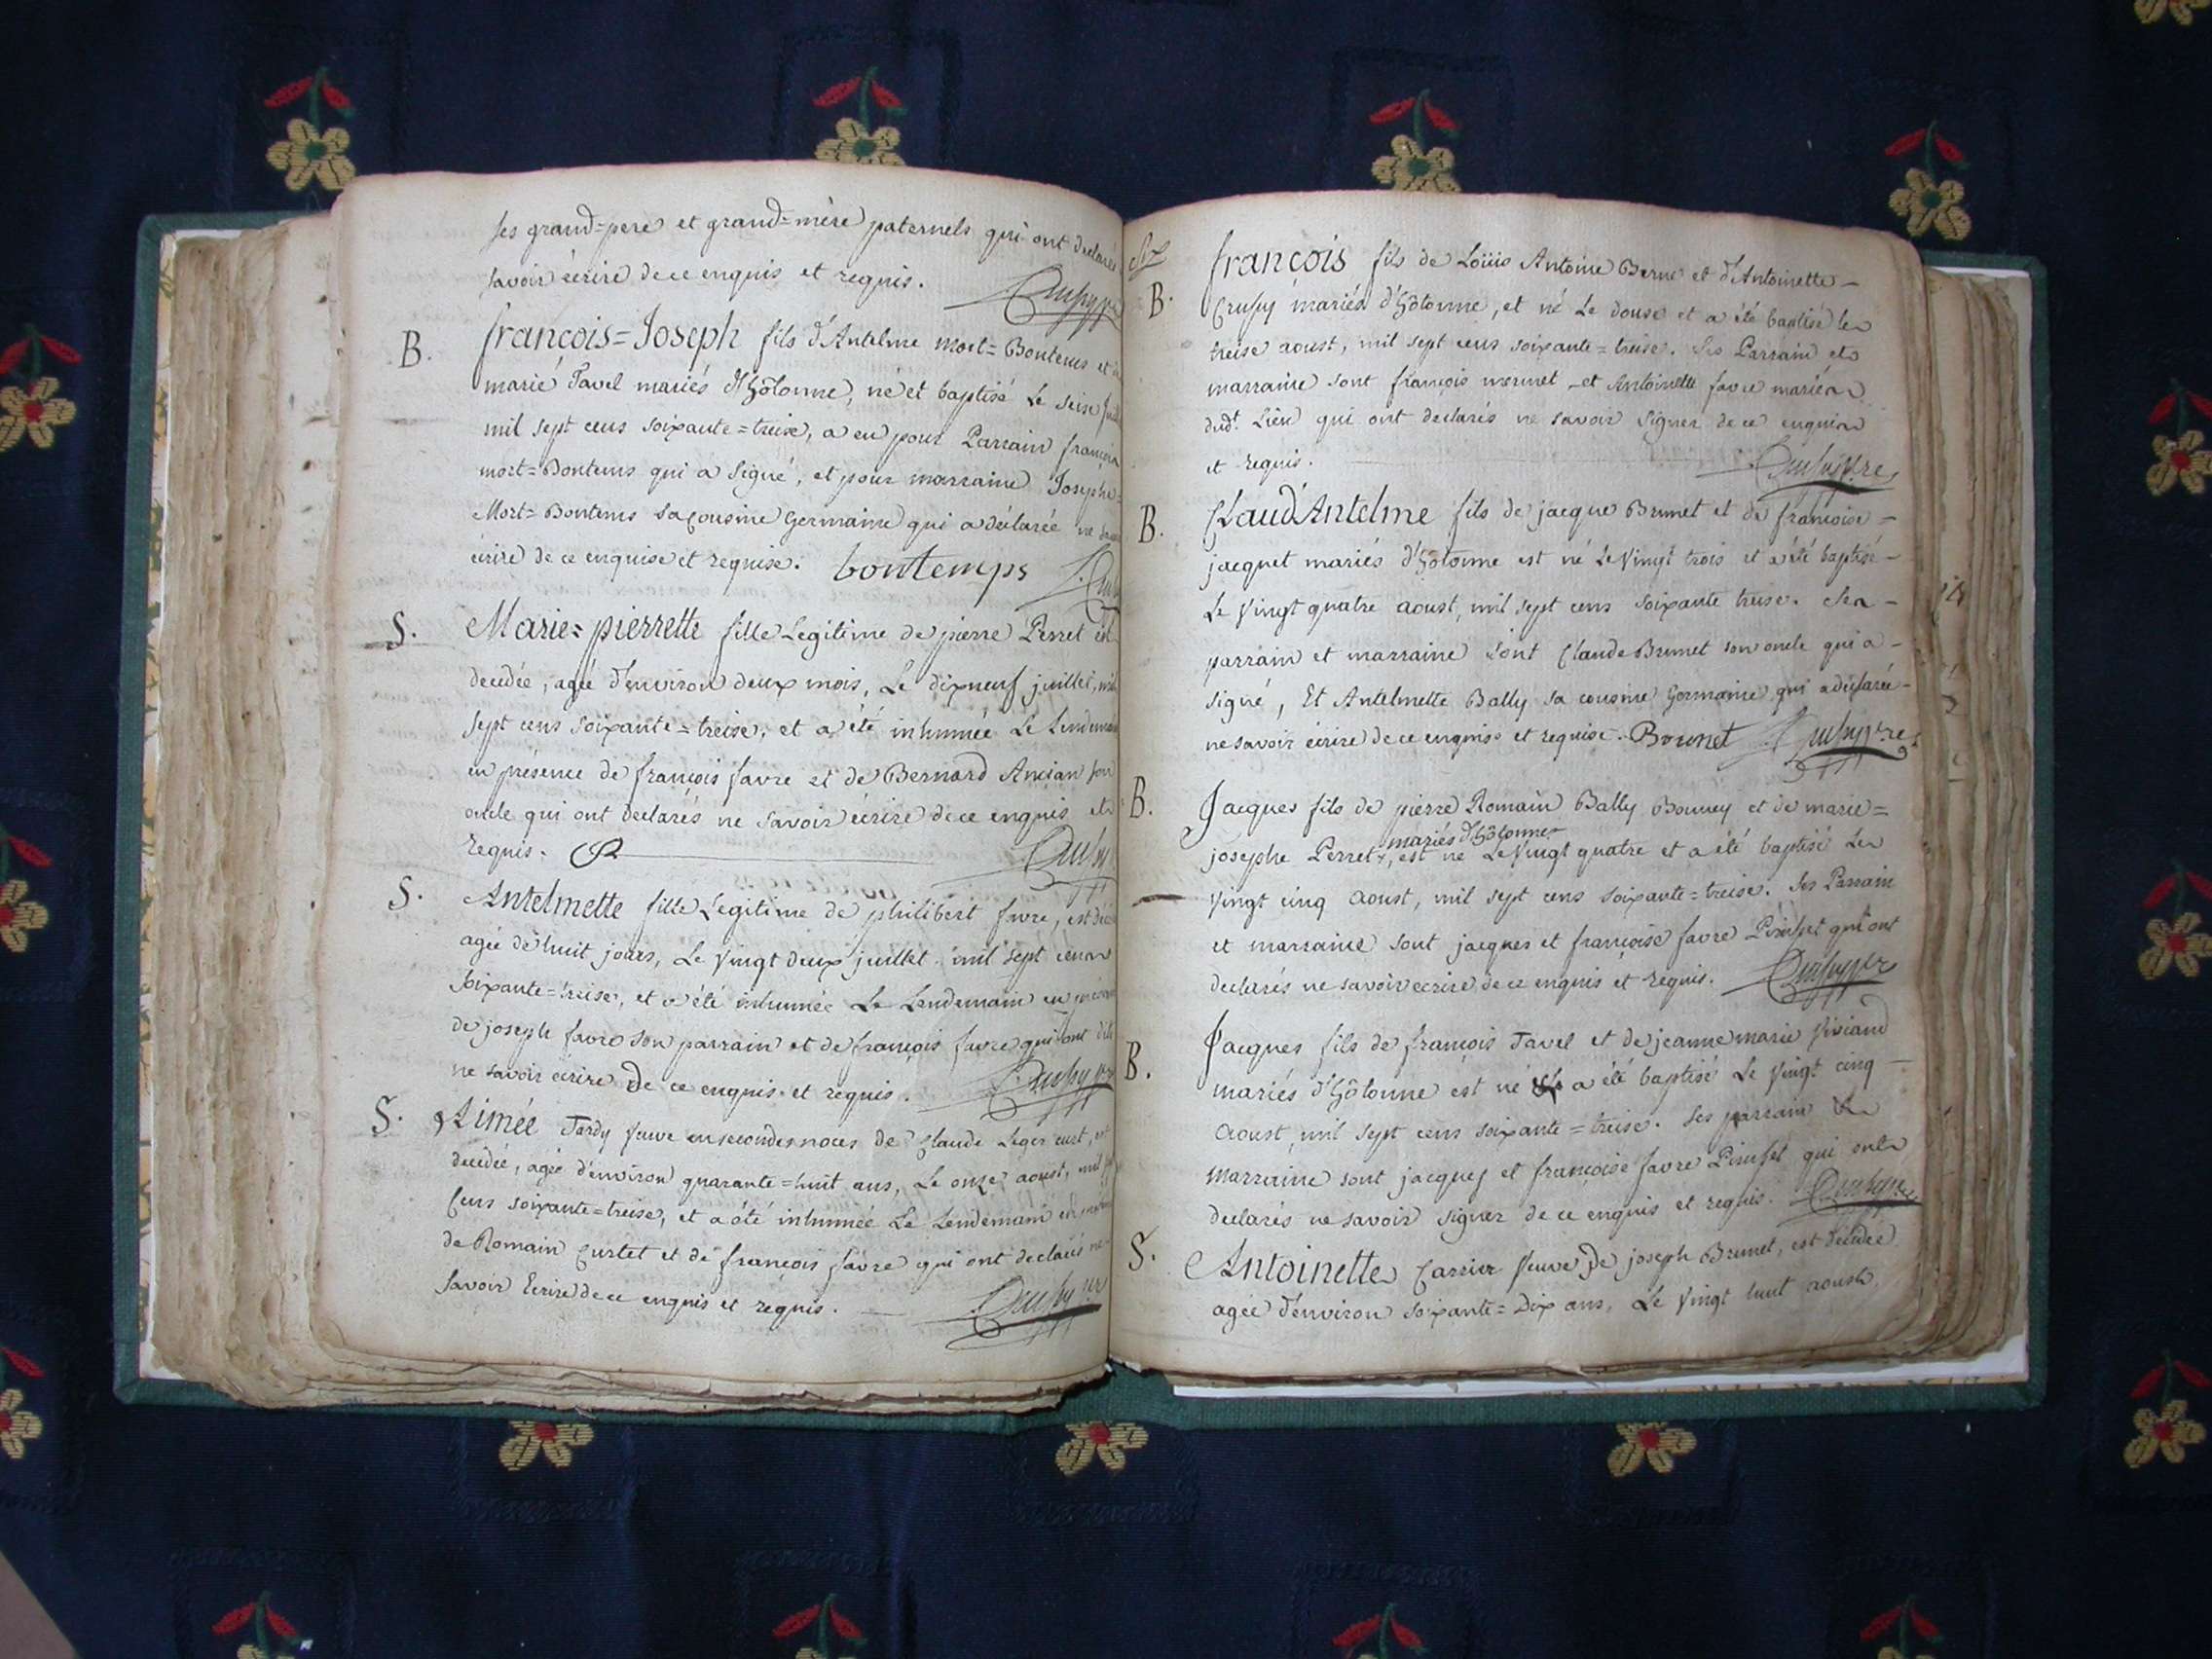 ses grand=pere et grand=mère paternels qui ont declarés
savoir écrire de ce enquis et requis.
B. françois=Joseph fils d'Antelme mort=Bontems et
marie Tavel mariés d'hôtonne, né et baptisé le seise
mil sept cens soixante=treize, a eu pour Parrain françois
mort=Bontems qui a signé, et pour marraine Josephe=
Mort=Bontems sa cousine Germaine qui a déclarée ne
écrire de ce enquise et requise. bontemps
S. Marie=pierrette fille Legitime de pierre Perret est
decedée, agée d'environ deux mois, Le dixneuf juillet, mil
sept cens soixante=treise, et a été inhumée Le Lendemain
en présence de françois favre et de Bernard Ancian son
oncle qui ont declarés ne savoir écrire de ce enquis et
requis.
S. Antelmette fille Legitime de philibert favre, est
agée de huit jours, Le vingt deux juillet mil sept cens
soixante=treise, et a été inhumée Le Lendemain en
de joseph favre son parrain et de françois favre qui ont
ne savoir écrire De ce enquis et requis.
S. Aimée Tardy veuve en secondes noces de Claude Leger curt,
decedée, agée d'environ quarante=huit ans, Le onze aoust, mil
Cens soixante=treise, et a été inhumée Le Lendemain en
de Romain Curtet et de françois favre qui ont declarés ne
savoir Ecrire de ce enquis et requis.
B. françois fils de Loüis Antoine Berne et d'Antoinette
mariés d'hôtonne, et né Le douse et a été baptisé le
treise aoust, mil sept cens soixante=treise. Ses Parrain et
marraine sont françois mermet et Antoinette favre mariés
dud.t Lieu qui ont declarés ne savoir signer de ce enquis
et requis.
B. Claud'Antelme fils de jacque Brunet et de françoise
jacquet mariés d'hôtonne est né Le Vingt trois et a été baptisé
Le Vingt quatre aoust, mil sept cens soixante treise. Ses
parrain et marraine sont Claude Brunet son oncle qui a
signé, Et Antelmette Bally sa cousine Germaine qui a déclarée
ne savoir écrire de ce enquise et requise. Brunet
B. Jacques fils de pierre Romain Bally Bonney et de marie=
mariés d'hôtonne
josephe Perret, est né Le Vingt quatre et a été baptisé Le
Vingt cinq aoust, mil sept cens soixante=treise. Ses Parrain
et marraine sont jacques et françoise favre qui ont
declarés ne savoir ecrire de ce enquis et requis.
B. Jacques fils de françois Tavel et de jeanne marie Viviand
mariés d'hôtonne est né a été baptisé Le Vingt cinq
aoust, mil sept cens soixante=treise. Ses parrain
marraine sont jacques et françoise favre qui ont
declarés ne savoir signer de ce enquis et requis.
S. Antoinette Carrier Veuve De joseph Brunet, est décédée
agée d'environ soixante=Dix ans, Le Vingt huit aoust